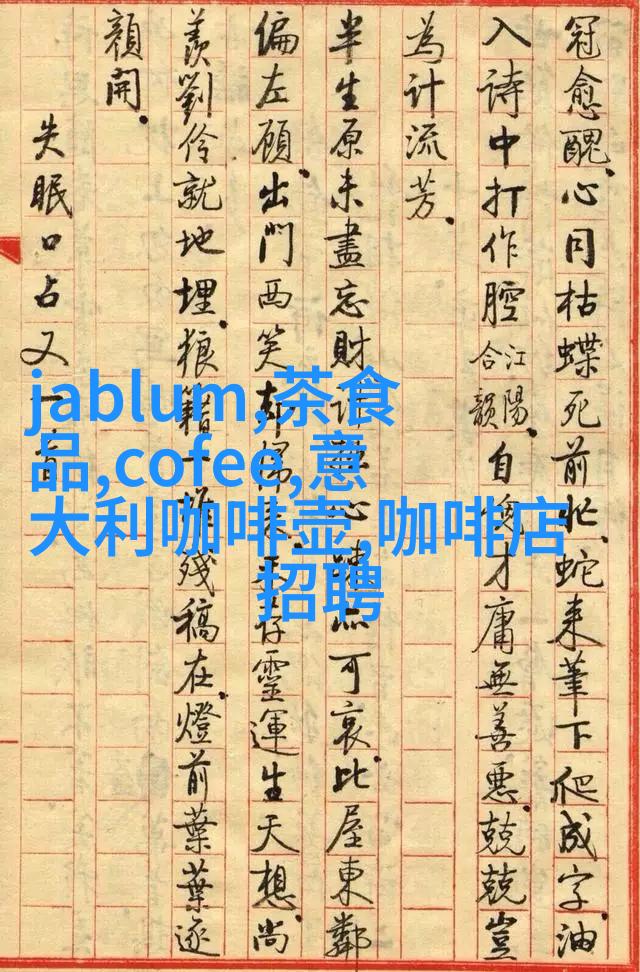 冠愈醜、心同枯蝶死前忙、蛇来筆下爬成字、油
入詩中打作腔江陽合韻、自愧才庸無善惡、兢兢豈
為計流芳、
半生原未盡忘財、心可哀、比屋東鄰
偏左顧、出門西笑却存靈運生天想、尚
羨劉伶就地埋、狼籍一殘稿在、燈前葉葉逐
顏開、
失眠口占又一首
jablum,茶食
品,cofee,意
大利咖啡壶,咖啡店
招聘